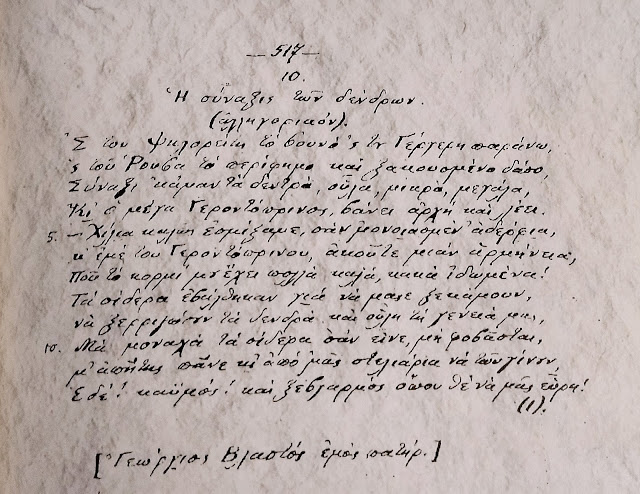 — 517 —
10.
Ἡ σύναξις τῶν δένδρων.
(ἀλληγορικόν).
Σ τὸν Ψηλορείτη τὸ βουνὸ ς τὴ Γέργερη παράνω,
ς τοῦ Ῥούβα τὸ περίφημο καὶ ξακουσμένο δάσο,
Σύναξι κάμαν τὰ δεντρά, οὗλα, μικρά, μεγάλα,
Κι ὁ μέγα Γεροντόπρινος, βάνει ἀρχὴ καὶ λέει.
5. — Χίλια καλῶς ἐσμίξαμε, σὰν μονοιασμέν' ἀδέρφια,
κι ἐμὲ τοῦ Γεροντόπρινου, ἀκοῦτε μιὰν ἁρμήνεια,
Ποῦ τὸ κορμί μ' ἔχει πολλὰ καλά, κακὰ ἰδωμένα!
Τὰ σίδερα ἐβάλθηκαν γιὰ νὰ μᾶσε ξεκάμουν,
νὰ ξερριζώσουν τὰ δενδρὰ καὶ οὕλη τὴ γενεά μας,
10. Μὰ μοναχὰ τὰ σίδερα σὰν εἶνε, μὴ φοβᾶσται,
μ' ἀπήτης πᾶνε κι ἀπό μᾶς στελιάρια νὰ τῶν γίνουν,
Ἐδέ! καϋμός! καὶ ξεβγαρμὸς ὅπου θὲ νὰ μᾶς εὕρῃ!
(1).
[Γεώργιος Βλαστὸς ἐμὸς πατήρ.]